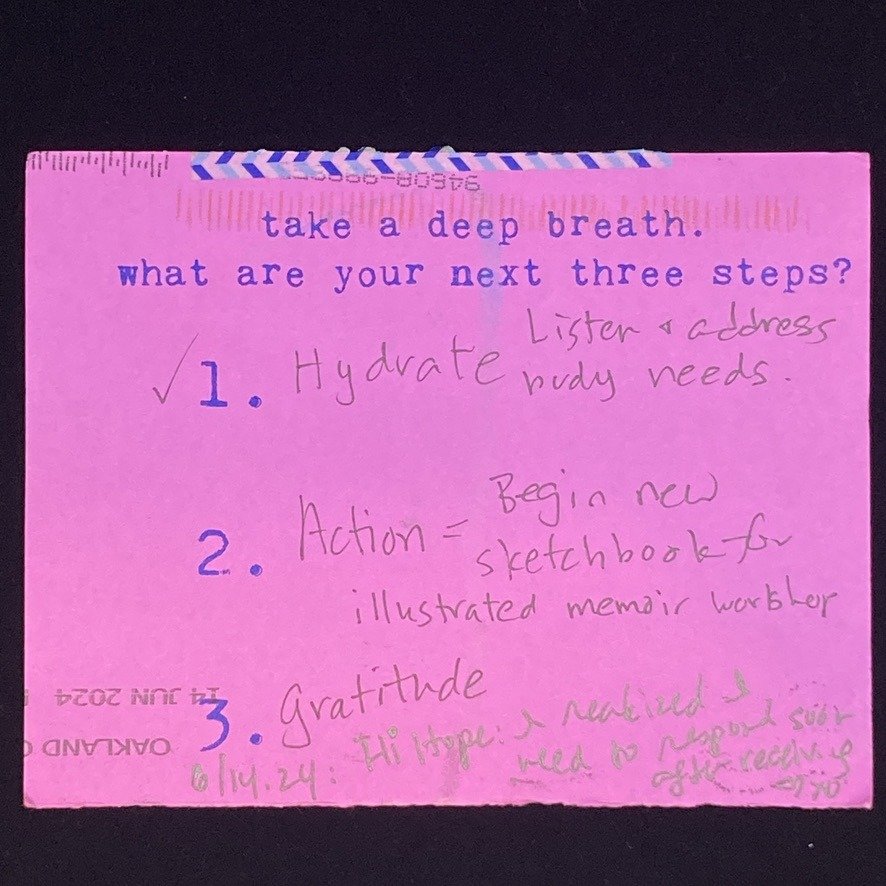 take a deep breath.
what are your next three steps?
✓ 1. Hydrate Listen & address
body needs.
2. Action = Begin new
sketchbook for
illustrated memoir workshop
3. gratitude
14 JUN 2024
OAKLAND
6/14.24: Hi Hope: I realized I
need to respond soon
after receiving